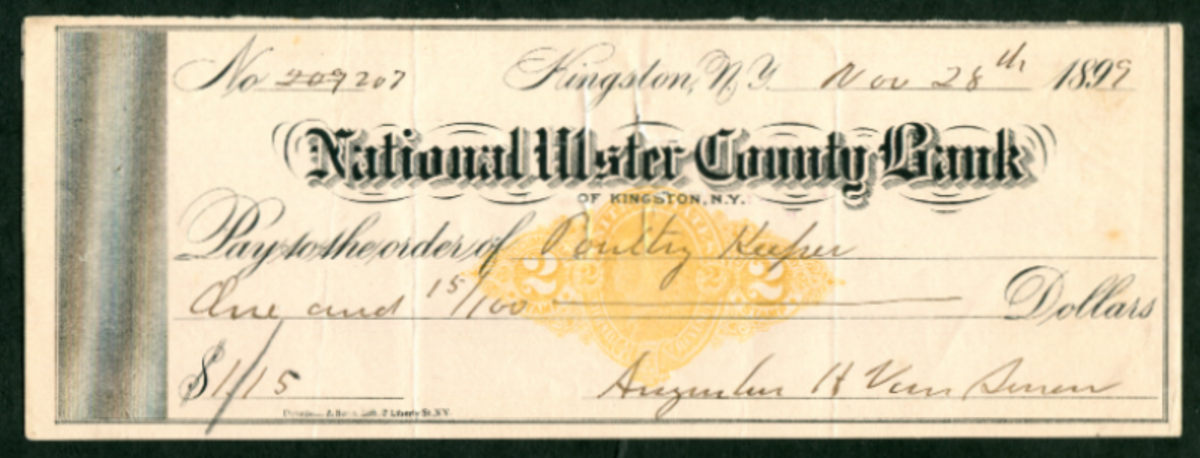 No 209 207 Kingston, N.Y. Nov 28th 1899
National Ulster County Bank
OF KINGSTON, N.Y.
Pay to the order of Poultry Keeper
2 2 2 2
One and 15/100 Dollars
$1/15 H Van
Lith. Liberty St. N.Y.